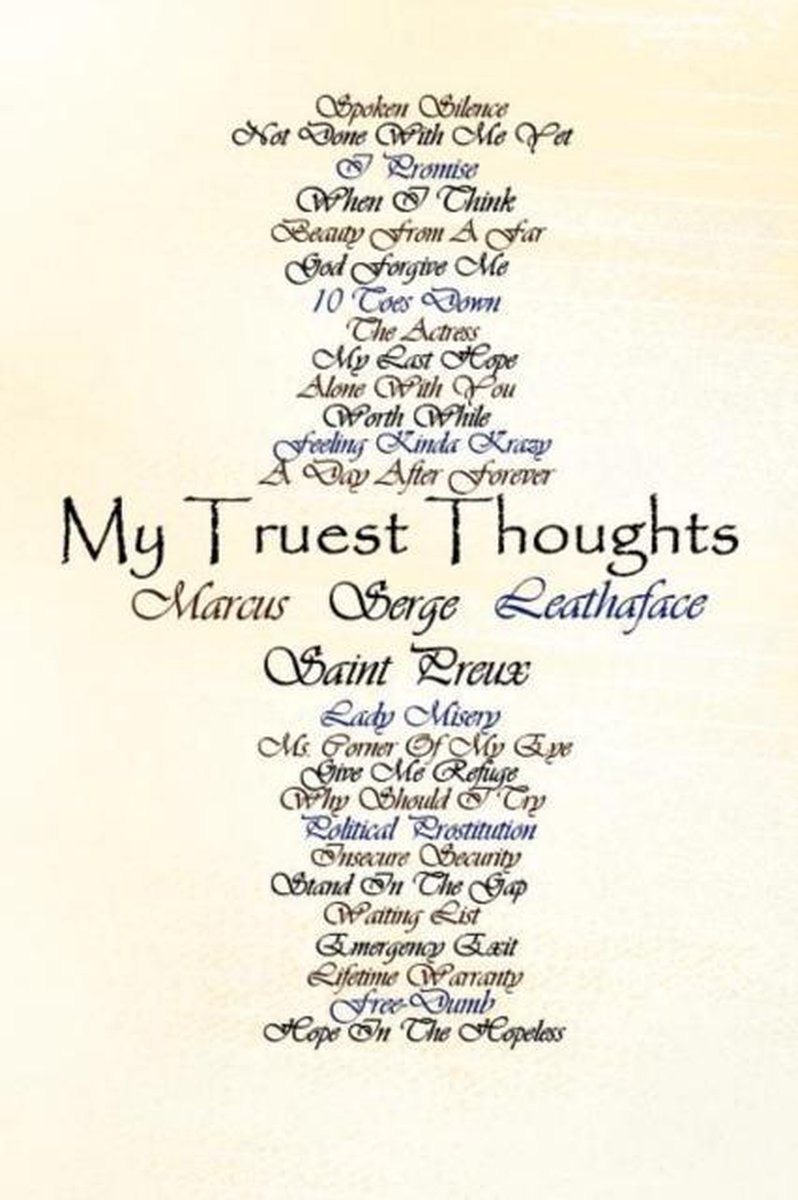 Spoken Silence
Not Done With Me Yet
I Promise
When I Think
Beauty From A Far
God Forgive Me
10 Toes Down
The Actress
My Last Hope
Alone With You
Worth While
Feeling Kinda Krazy
A Day After Forever
My Truest Thoughts
Marcus Serge Leathaface
Saint Preux
Lady Misery
Ms. Corner Of My Eye
Give Me Refuge
Why Should I Try
Political Prostitution
Insecure Security
Stand In The Gap
Waiting List
Emergency Exit
Lifetime Warranty
Free-Dumb
Hope In The Hopeless